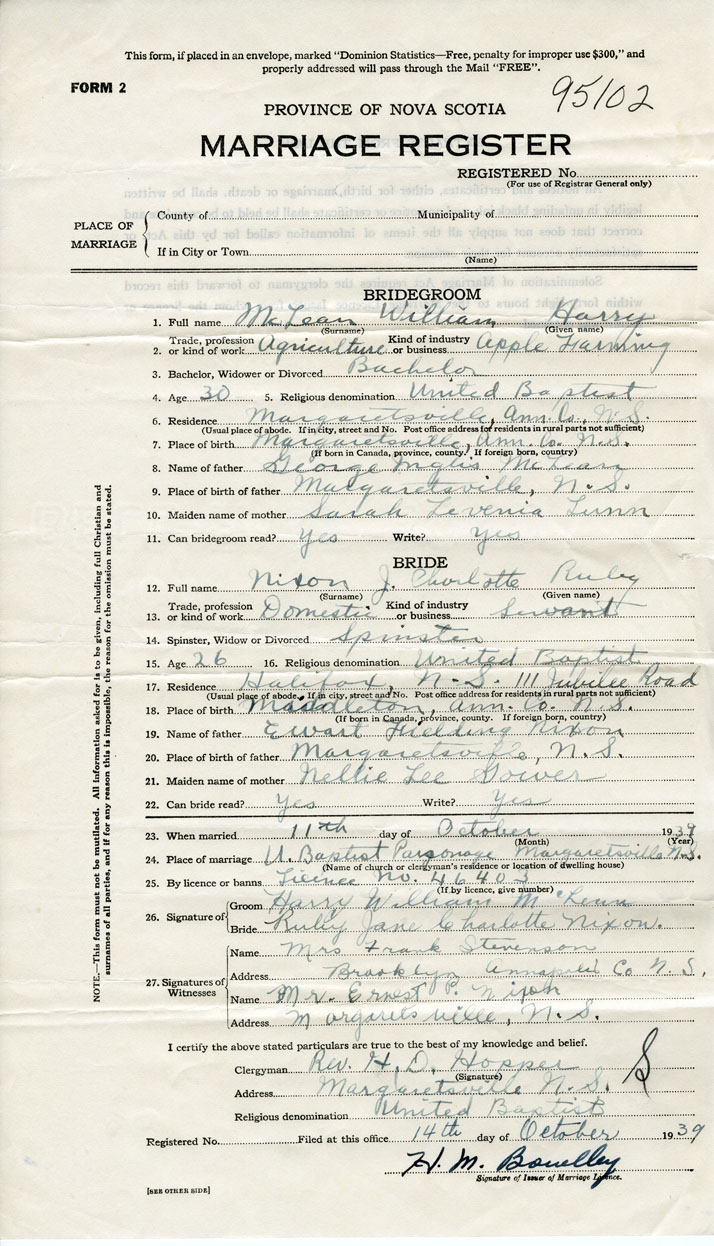 This form, if placed in an envelope, marked "Dominion Statistics—Free, penalty for improper use $300," and
properly addressed will pass through the Mail "FREE".
FORM 2
95102
PROVINCE OF NOVA SCOTIA
MARRIAGE REGISTER
REGISTERED No.
(For use of Registrar General only)
PLACE OF MARRIAGE
County of Municipality of
If in City or Town
(Name)
BRIDEGROOM
1. Full name McLean William Harry
(Surname) (Given name)
2. Trade, profession or kind of work Agriculture Kind of industry or business Apple Farming
3. Bachelor, Widower or Divorced Bachelor
4. Age 30 5. Religious denomination United Baptist
6. Residence Margaretsville, Ann. Co., N.S.
(Usual place of abode. If in city, street and No. Post office address for residents in rural parts not sufficient)
7. Place of birth Margaretsville, Ann. Co. N.S.
(If born in Canada, province, county. If foreign born, country)
8. Name of father George Inglis McLean
9. Place of birth of father Margaretsville, N.S.
10. Maiden name of mother Sarah Levenia
11. Can bridegroom read? Yes Write? Yes
BRIDE
12. Full name Nixon J. Charlotte Ruby
(Surname) (Given name)
13. Trade, profession or kind of work Domestic Kind of industry or business Servant
14. Spinster, Widow or Divorced Spinster
15. Age 26 16. Religious denomination United Baptist
17. Residence Halifax, N.S. 111 Jubilee Road
(Usual place of abode. If in city, street and No. Post office address for residents in rural parts not sufficient)
18. Place of birth Middleton, Ann. Co. N.S.
(If born in Canada, province, county. If foreign born, country)
19. Name of father Ewart Fielding Nixon
20. Place of birth of father Margaretsville, N.S.
21. Maiden name of mother Nellie Lee Gower
22. Can bride read? Yes Write? Yes
23. When married 11th day of October 1939
(Month) (Year)
24. Place of marriage U. Baptist Parsonage Margaretsville N.S.
(Name of church or clergyman's residence or location of dwelling house)
25. By licence or banns Licence No. 46403
(If by licence, give number)
26. Signature of
Groom Harry William McLean
Bride Ruby Jane Charlotte Nixon.
27. Signatures of Witnesses
Name Mrs Frank Stevenson
Address Brooklyn Co N.S.
Name Mr. Ernest P. Nixon
Address Margaretsville, N.S.
I certify the above stated particulars are true to the best of my knowledge and belief.
Clergyman Rev. H. D. Hopper
(Signature)
Address Margaretsville N.S.
Religious denomination United Baptist
Registered No. Filed at this office 14th day of October 1939
H. M.
Signature of Issuer of Marriage Licence.
[SEE OTHER SIDE]
NOTE.—This form must not be mutilated. All information asked for is to be given, including full Christian and
surnames of all parties, and if for any reason this is impossible, the reason for the omission must be stated.